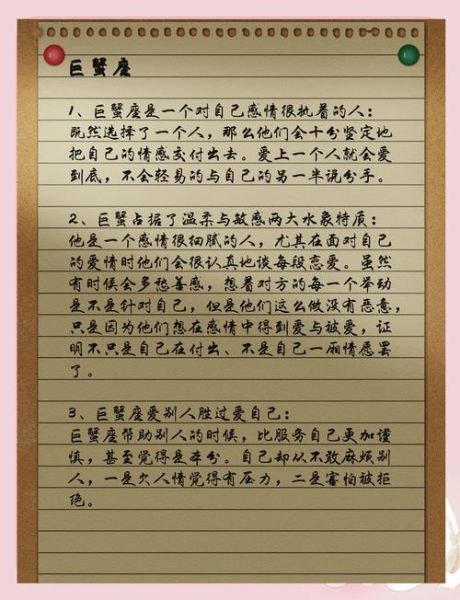 巨蟹座
1、巨蟹座是一个对自己感情很执着的人：
既然选择了一个人，那么他们会十分坚定地
把自己的情感交付出去。爱上一个人就会爱
到底，不会轻易的与自己的另一半说分手。
2、巨蟹占据了温柔与敏感两大水象特质：
他是一个感情很细腻的人，尤其在面对自己
的爱情时他们会很认真地谈每段恋爱。虽然
有时候会多愁善感，想着对方的每一个举动
是不是针对自己，但是他们这么做没有恶意，
只是因为他们想在感情中得到爱与被爱，证
明不只是自己在付出、不是自己一厢情愿罢
了。
3、巨蟹座爱别人胜过爱自己：
巨蟹座帮助别人的时候，比服务自己更加谨
慎，甚至觉得是本分。自己却从不敢麻烦别
人，一是欠人情觉得有压力，二是害怕被拒
绝。